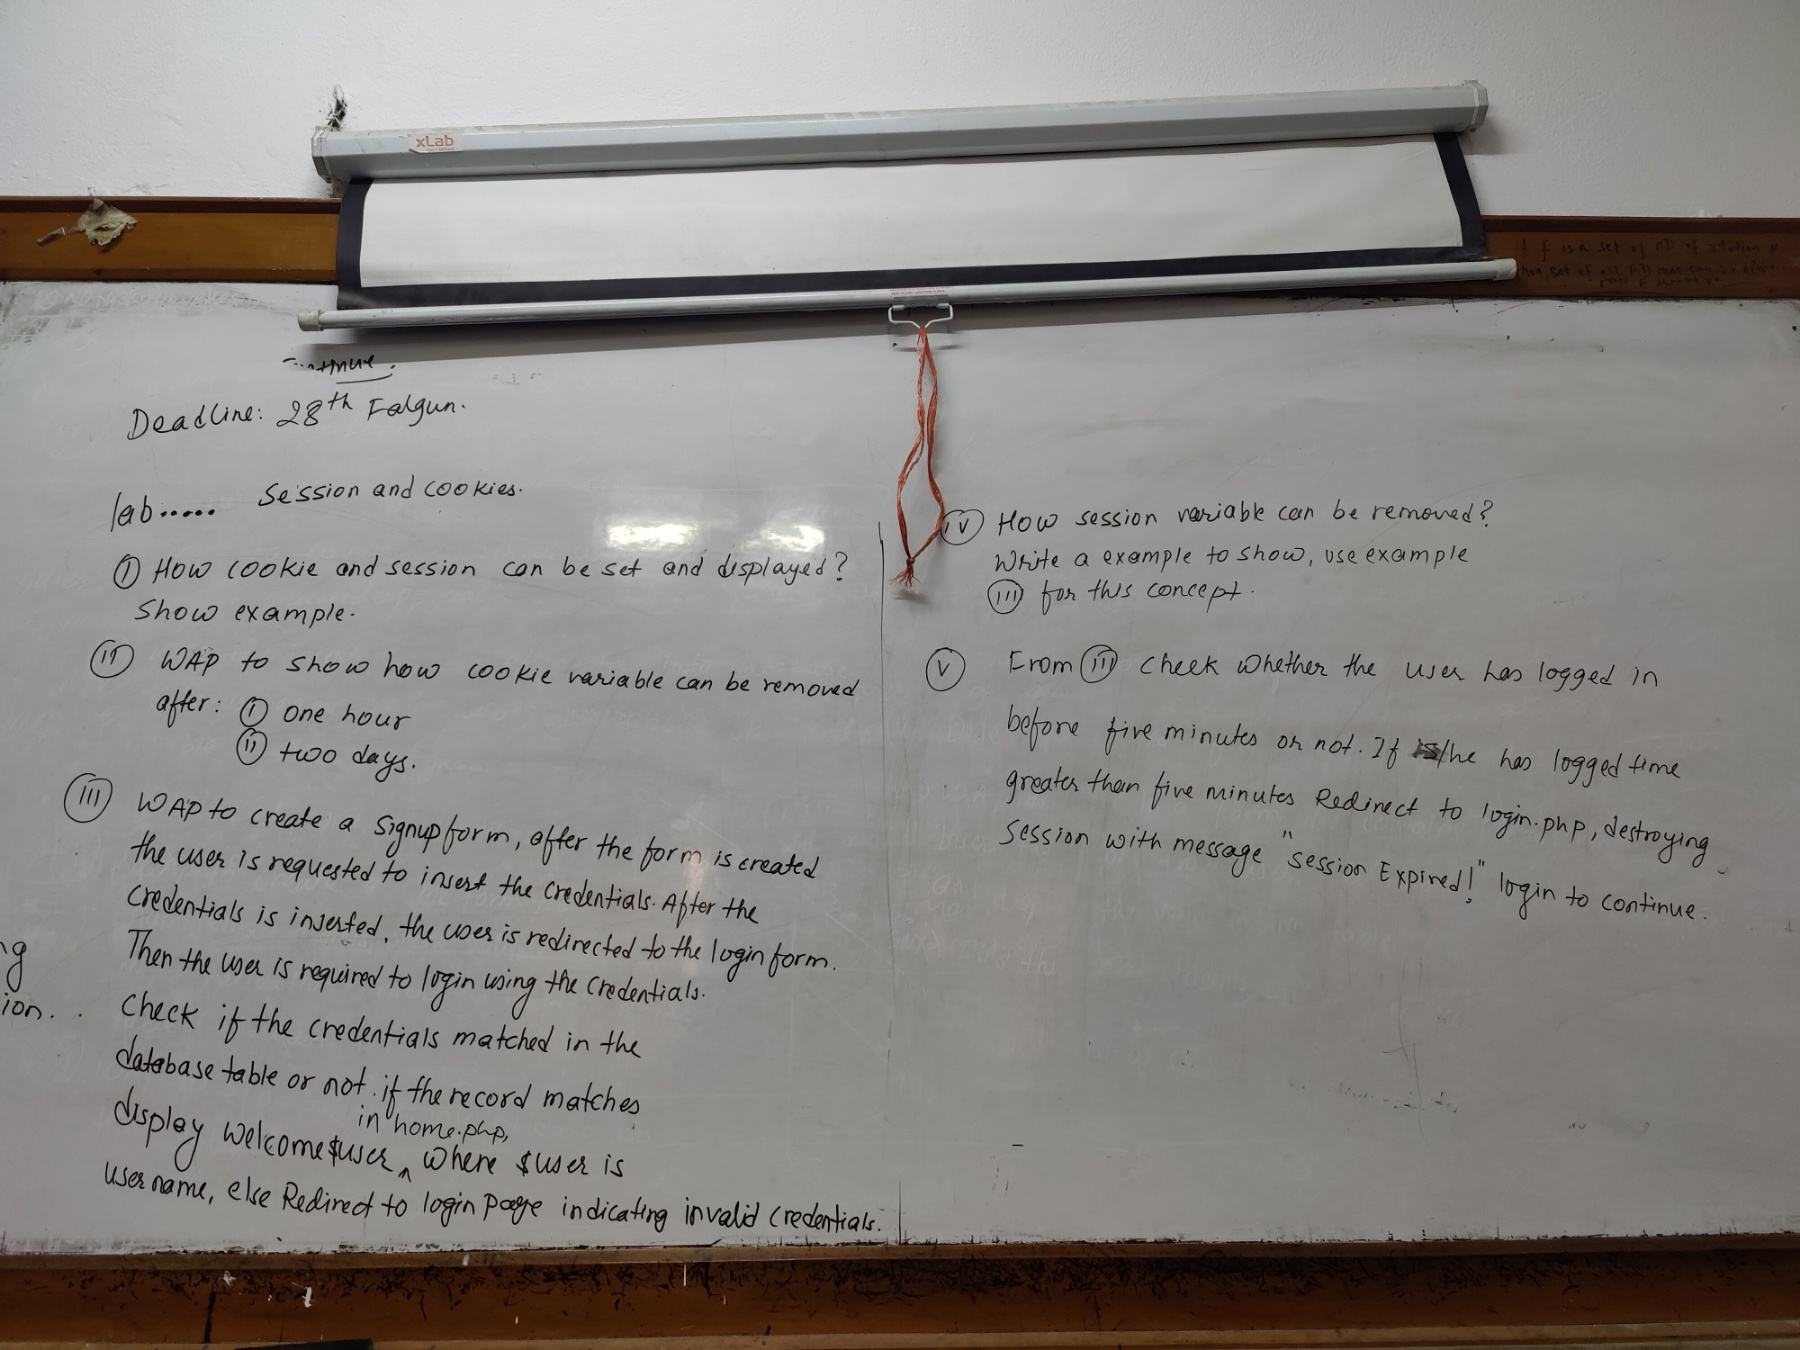 xLab
Deadline: 28th Falgun.
lab..... Session and cookies.
(i) How cookie and session can be set and displayed?
Show example.
(ii) WAP to show how cookie variable can be removed
after: (i) one hour
(ii) two days.
(iii) WAP to create a Signup form, after the form is created
the user is requested to insert the credentials. After the
credentials is inserted, the user is redirected to the login form.
Then the user is required to login using the credentials.
Check if the credentials matched in the
database table or not. if the record matches
in home.php,
display welcome $user ^ where $user is
username, else Redirect to login page indicating invalid credentials.
(iv) How session variable can be removed?
Write a example to show, use example
(iii) for this concept.
(v) From (iii) check whether the user has logged in
before five minutes or not. If s/he has logged time
greater than five minutes Redirect to login.php, destroying
session with message "session Expired!" login to continue.
ng
ion..